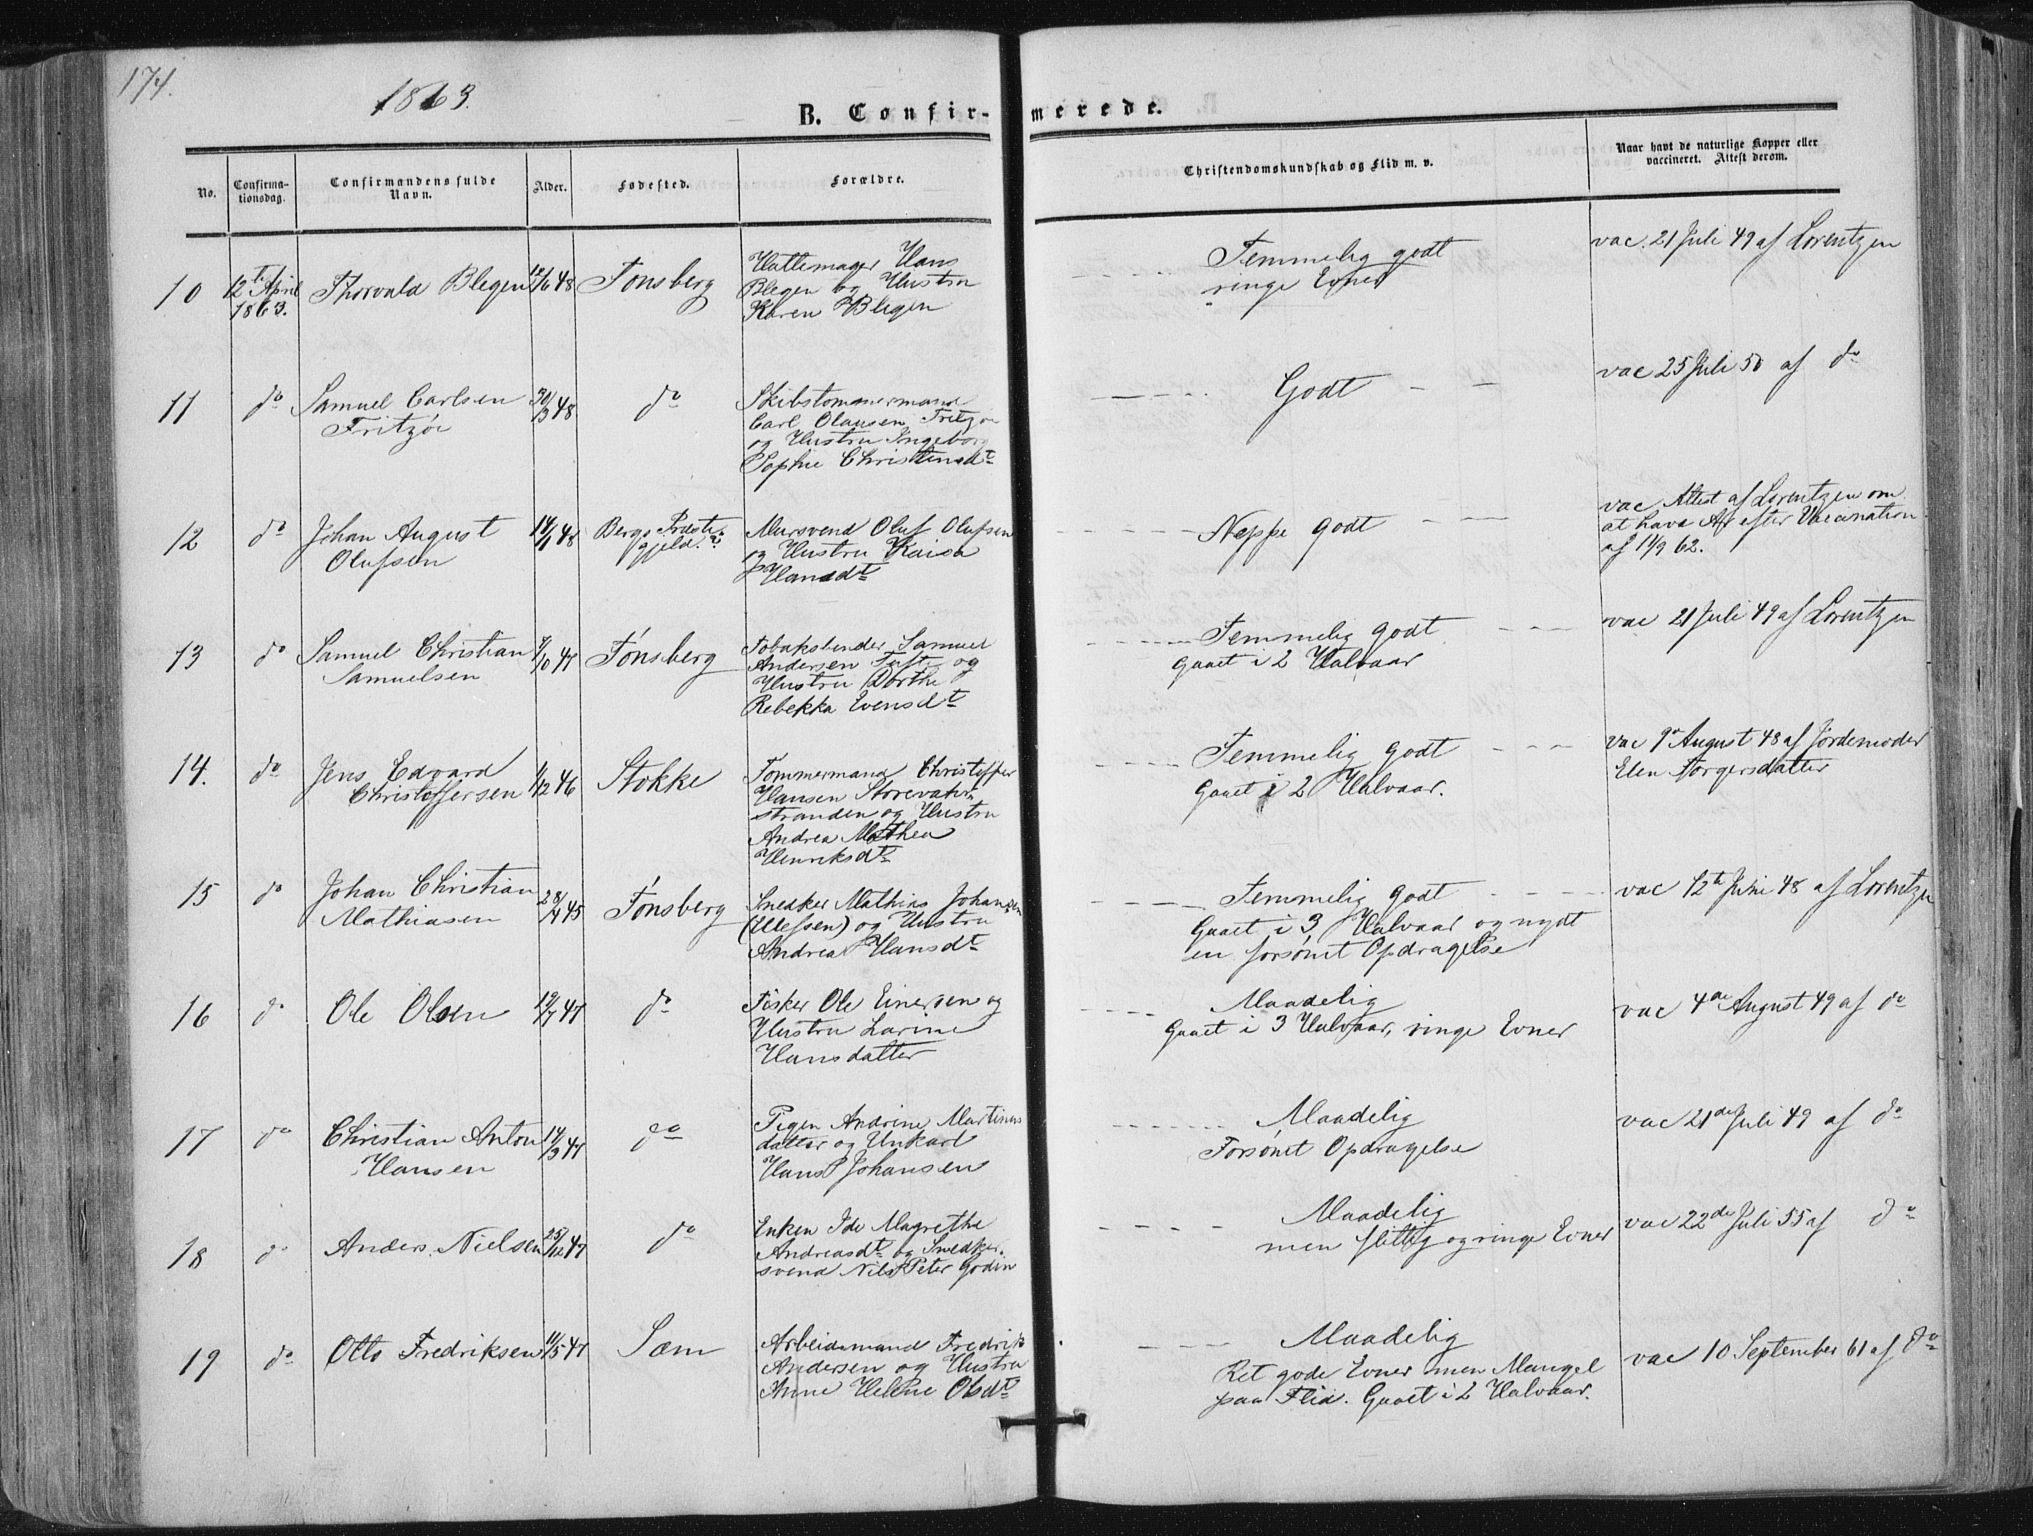 174.
1863.
B. Confir-merede.
No.
Confirma-
tionsdag.
Confirmandens fulde
Navn.
Alder.
Fødested.
Forældre.
Christendomskundskab og Flid m. v.
Naar havt de naturlige Kopper eller
vaccineret. Attest derom.
10
12te April
1863.
Thorvald Blegen
12/6 48
Tønsberg
Hattemager Hans
Blegen og Hustru
Karen Blegen
Temmelig godt
ringe Evner
vac. 21 Juli 49 af Lorentzen
11
do
Samuel Carlsen
Fritzøe
30/3 48
do
Skibstømmermand
Carl Olausen Fritzøe
og Hustru Ingeborg
Sophie Christensdt
Godt
vac 25 Juli 50 af do
12
do
Johan August
Olufsen
14/1 48
Bergs Præste-
gjeld.?
Mursvend Oluf Olufsen
og Hustru Kaisa
Hansdt
Neppe godt
vac Attest af Lorentzen om
at have Ar efter Vaccination
af 11/9 62.
13
do
Samuel Christian
Samuelsen
/10 47
Tønsberg
Tobaksbinder Samuel
Andersen Tufte og
Hustru Dorthe
Rebekka Evensdt
Temmelig godt
Gaaet i 2 Halvaar
vac 21 Juli 49 af Lorentzen
14.
do
Jens Edvard
Christoffersen
1/12 46
Stokke
Tømmermand Christopher
Hansen Storevahr-
stranden og Hustru
Andrea Mathea
Henriksdt
Temmelig godt
Gaaet i 2 Halvaar.
vac 9o August 48 af Jordemoder
Elen Torgersdatter
15
do
Johan Christian
Mathiasen
28/4 45
Tønsberg
Snedker Mathias Johansen
(Ulefsen) og Hustru
Andrea Hansdt
Temmelig godt
Gaaet i 3 Halvaar og nydt
en forsømt Opdragelse
vac 12te Juni 48 af Lorentzen
16
do
Ole Olsen
19/7 47
do
Fisker Ole Einersen og
Hustru Larine
Hansdatter
Maadelig
Gaaet i 3 Halvaar, ringe Evner
vac 4de August 49 af do
17
do
Christian Anton
Hansen
14/3 47
do
Pigen Andrine Martinus
datter og Unkarl
Hans Johansen
Maadelig
Forsømt Opdragelse
vac 21de Juli 49 af do
18
do
Anders Nielsen
25/12 47
do
Enken Ide Magrethe
Andreasdt og Snedker-
svend Nils Peter Godin
Maadelig
men flittig og ringe Evner
vac 22de Juli 55 af do
19
do
Otto Fredriksen
11/5 47
Sæm
Arbeidsmand Fredrik
Andersen og Hustru
Anne Helene Olsdt
Maadelig
Ret gode Evner men Mangel
paa Flid. Gaaet i 2 Halvaar.
vac 10 September 61 af do